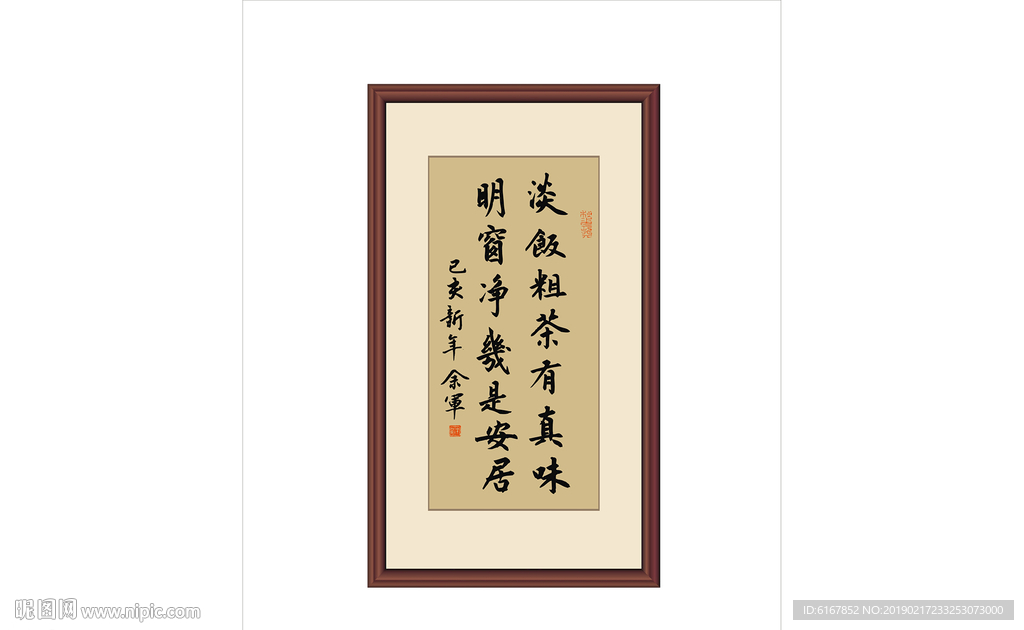 淡飯粗茶有真味
明窗净幾是安居
己亥新年 余軍
昵图网 www.nipic.com
ID:6167852 NO:20190217233253073000